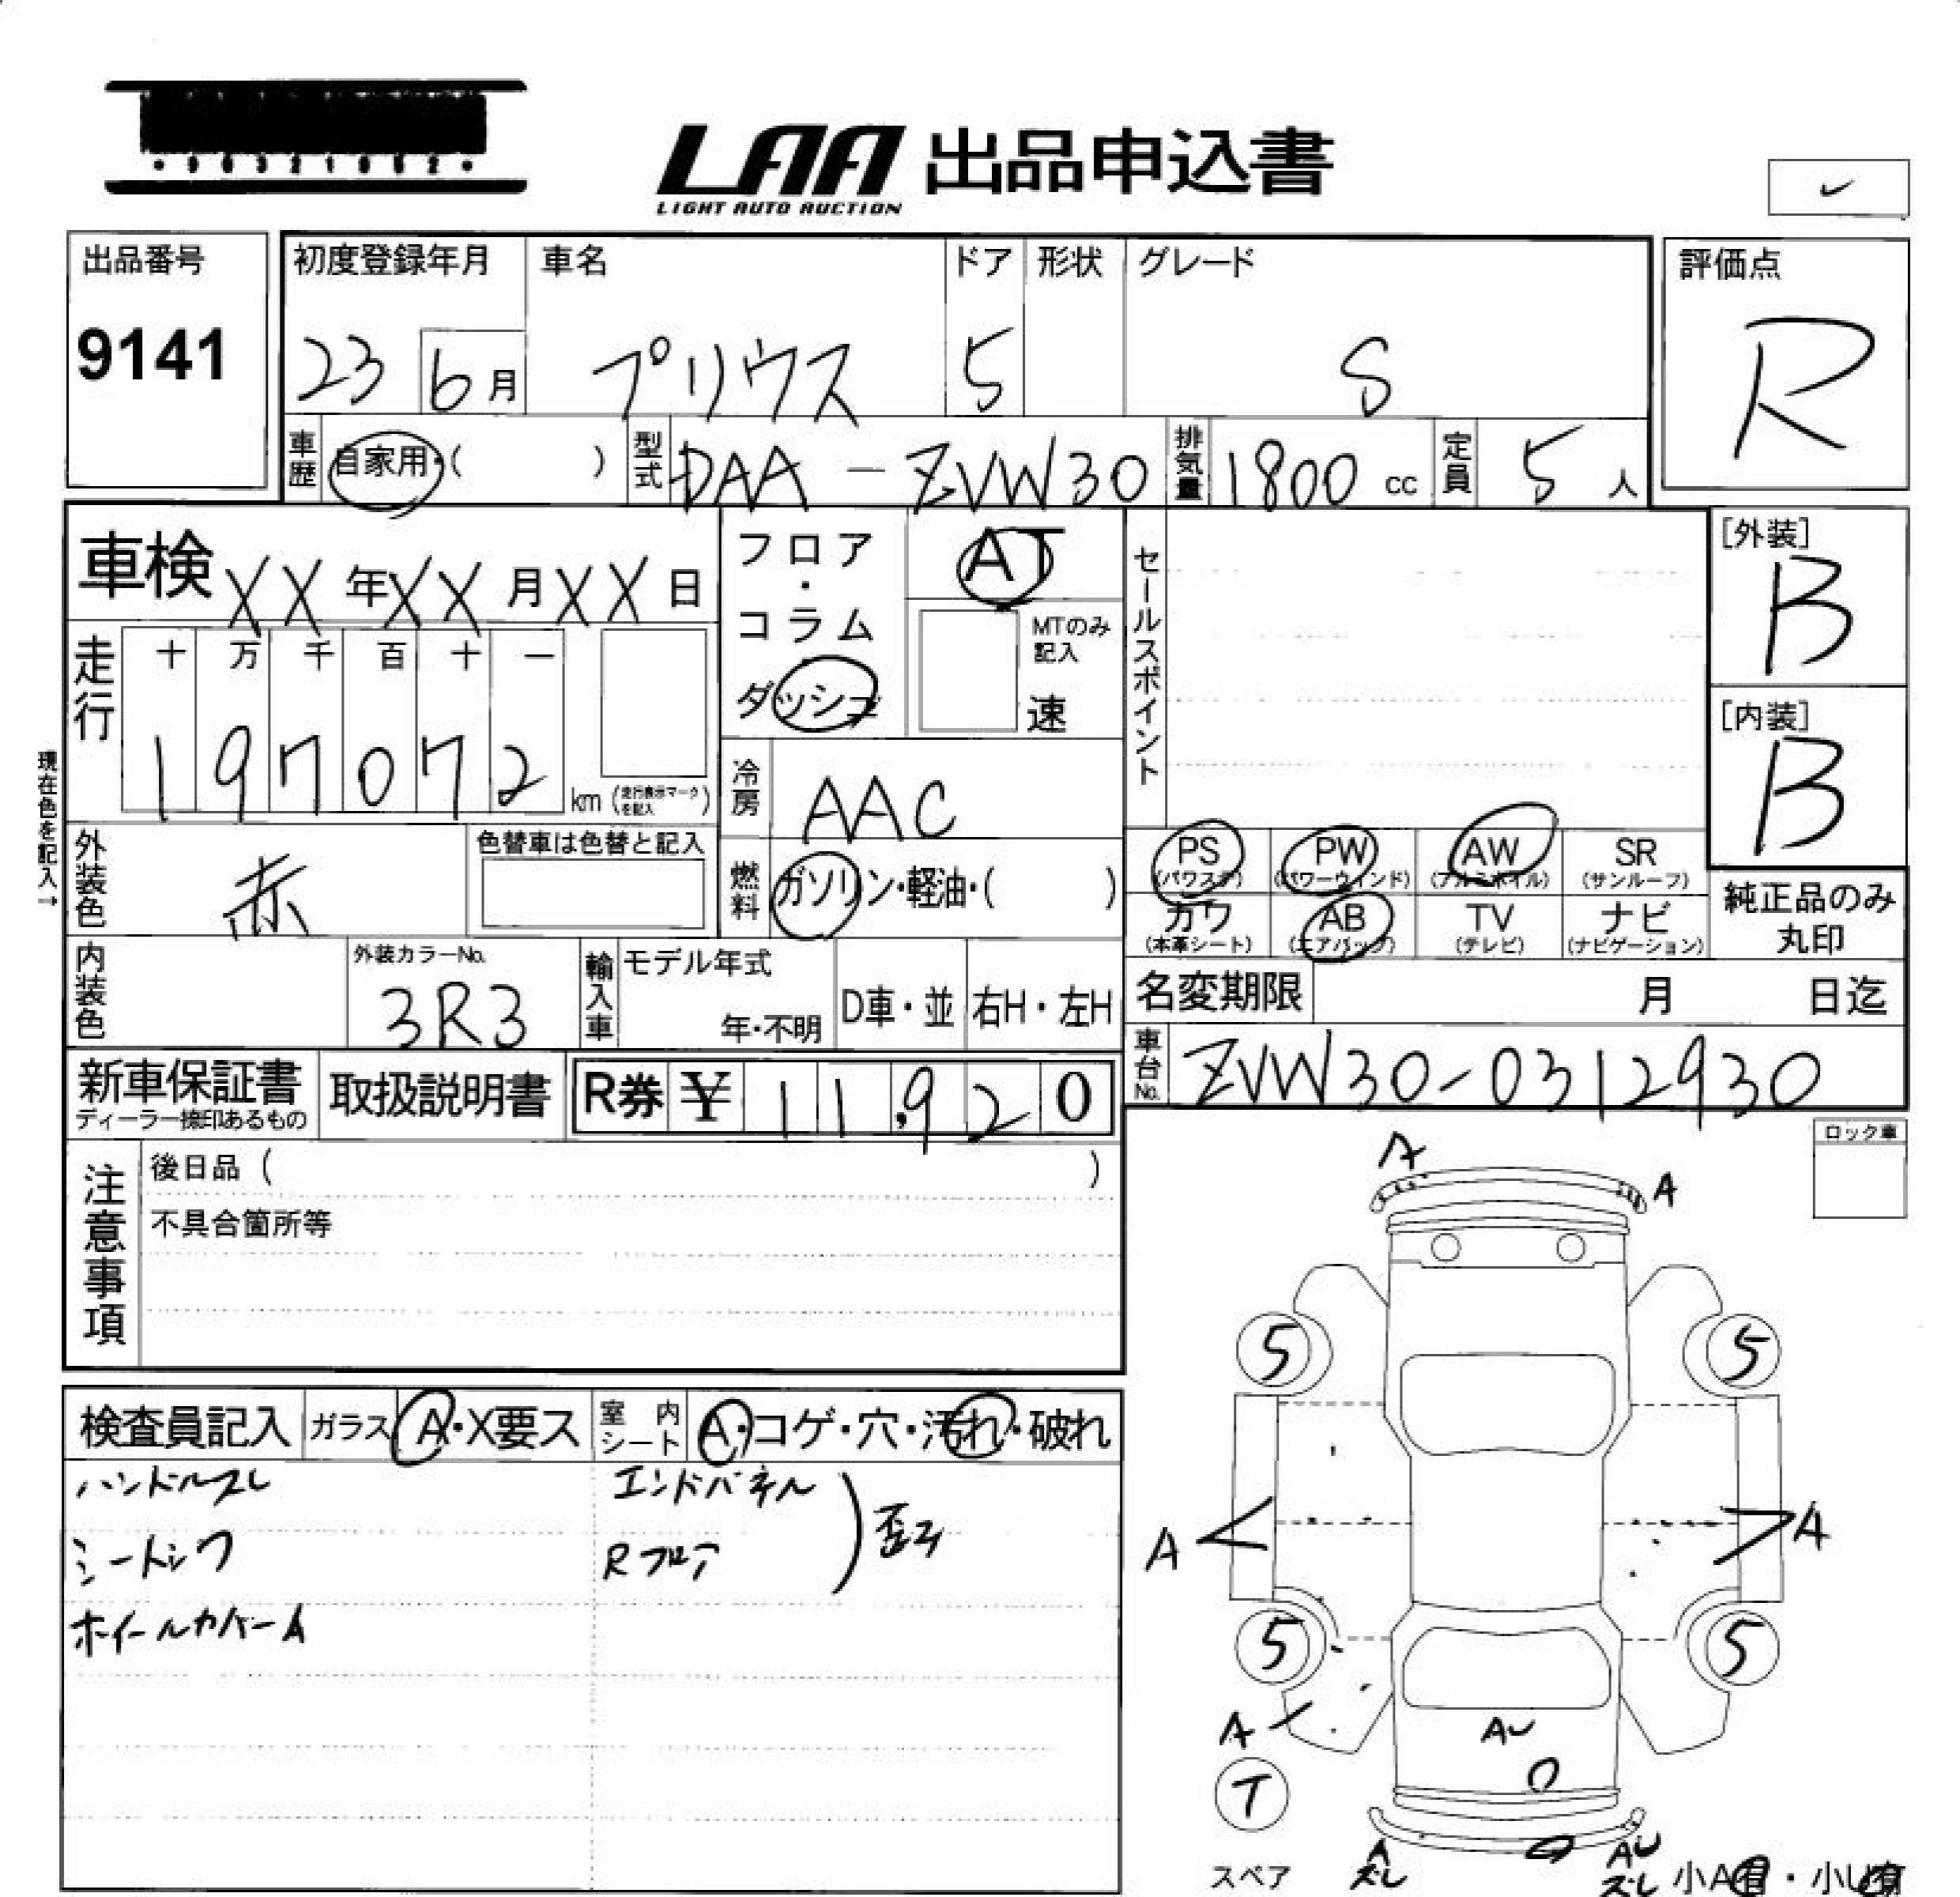 LAA 出品申込書
LIGHT AUTO AUCTION
出品番号
9141
初度登録年月 車名 ドア 形状 グレード
23 6月 プリウス 5 S
評価点
R
車歴 自家用・( ) 型式 DAA-ZVW30 排気量 1800 cc 定員 5 人
車検 XX年XX月XX日
フロア・コラム・ダッシュ
AT
MTのみ記入
速
セールスポイント
[外装]
B
[内装]
B
走行
十 万 千 百 十 一
1 9 7 0 7 2 km (走行表示マークを記入)
現在色を記入→
冷房 AAC
外装色 赤
色替車は色替と記入
燃料 ガソリン・軽油・( )
PS (パワステ) PW (パワーウィンド) AW (アルミホイル) SR (サンルーフ)
カワ (本革シート) AB (エアバッグ) TV (テレビ) ナビ (ナビゲーション)
純正品のみ丸印
内装色
外装カラーNo.
3R3
輸入車 モデル年式
年・不明
D車・並 右H・左H
名変期限 月 日迄
車台No. ZVW30-0312930
新車保証書 取扱説明書 R券 ¥ 11,920
ディーラー捺印あるもの
ロック車
注意事項
後日品 ( )
不具合箇所等
検査員記入 ガラス A・X要ス 室内シート A・コゲ・穴・汚れ・破れ
ハンドルスレ エンドパネル
シートシワ Rフロア
歪み
ホイールカバーA
A
A
5 5
A A
5 5
A
AU
T
スペア
A AU
ズレ ズレ
小A有・小U有